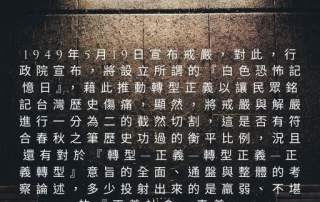 1949年5月19日宣布戒嚴，對此，行
政院宣布，將設立所謂的『白色恐怖記
憶日』，藉此推動轉型正義以讓民眾銘
記台灣歷史傷痛，顯然，將戒嚴與解嚴
進行一分為二的截然切割，這是否有符
合春秋之筆歷史功過的衡平比例，況且
還有對於『轉型—正義—轉型正義—正
義轉型』意旨的全面、通盤與整體的考
察論述，多少投射出來的是羸弱、不堪
的『正義社會』素養